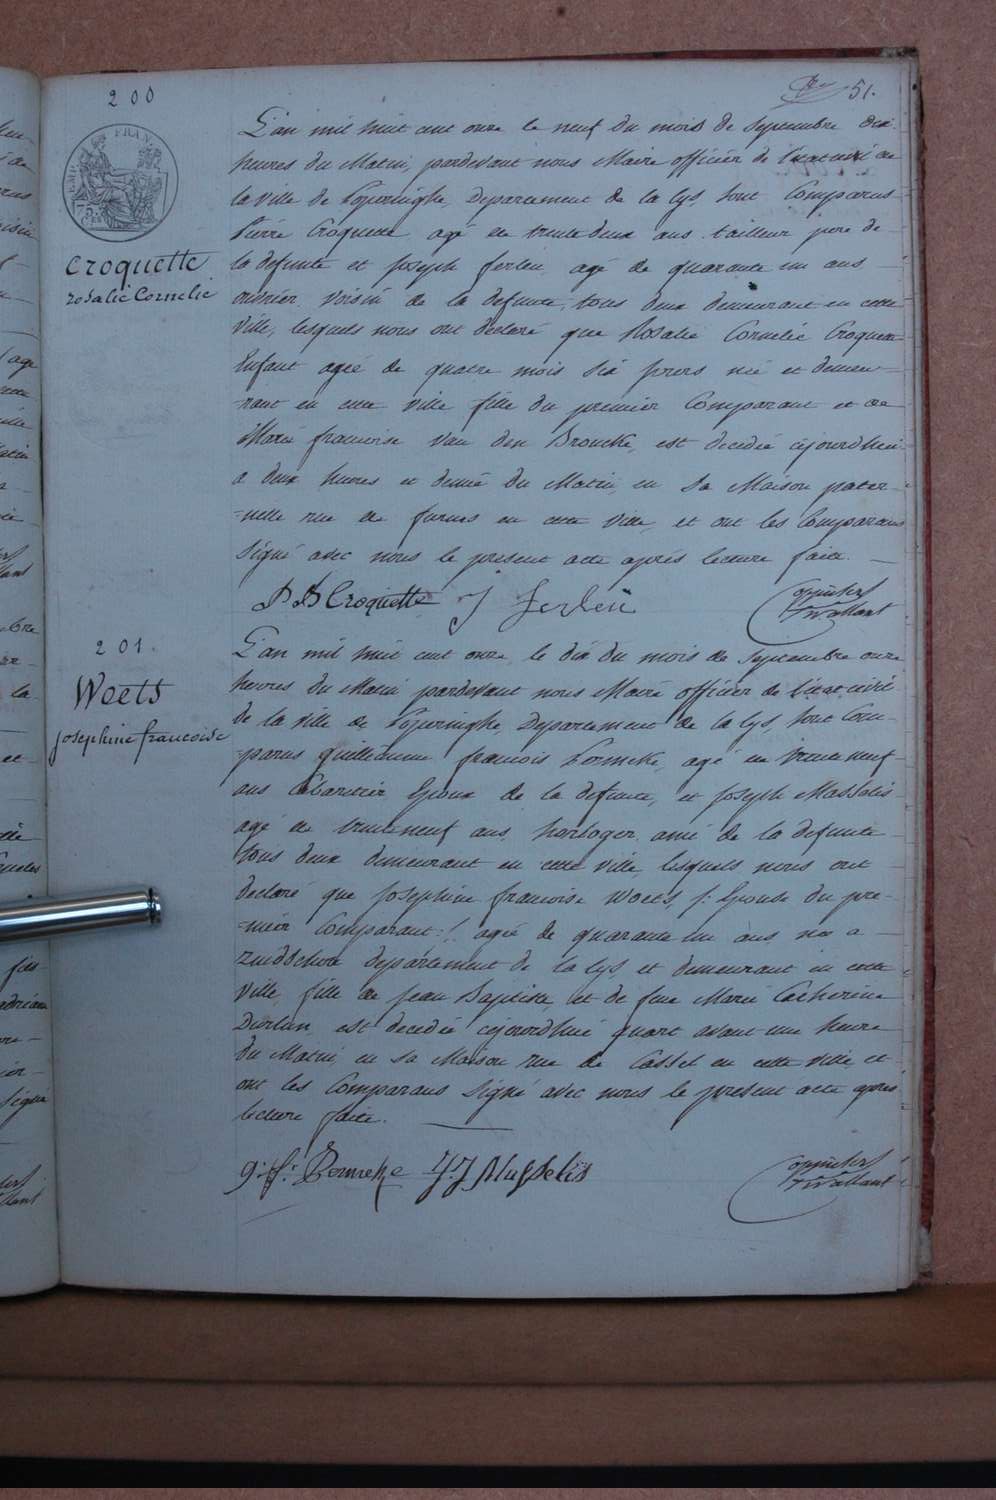 200
51.
L'an mil huit cent onze le neuf du mois de septembre dix
heures du Matin, pardevant nous Maire officier de l'etat civil de
la ville de Poperinghe, Departement de la Lys, sont Comparus
Pierre Croquette agé de trente deux ans tailleur pere de
Croquette
la defunte et Joseph ferleu agé de quarante un ans
rosalie Cornelie
ouvrier, voisin de la defunte, tous deux demeurant en cette
ville, lesquels nous ont declaré que Rosalie Cornelie Croquette
Enfant agée de quatre mois six jours née et demeu-
-rant en cette ville fille du premier Comparant et de
Marie francoise Van den Broucke, est decedée cejourdhui
a deux heures et demie du Matin, en sa Maison pater-
-nelle rue de furnes en cette ville, et ont les Comparans
signé avec nous le present acte aprés lecture faite.
Croquette J ferleu
201.
L'an mil huit cent onze, le dix du mois de septembre onze
Woets
heures du Matin pardevant nous Maire officier de l'etat civil
de la ville de Poperinghe, Departement de la Lys, sont Com-
Josephine francoise
-parus Guillaume francois agé de trente neuf
ans Cabaretier Epoux de la defunte, et Joseph Masselis
agé de trente neuf ans, horloger, ami de la defunte
tous deux demeurant en cette ville, lesquels nous ont
declaré que Josephine francoise Woets, /: Epouse du pre-
-mier Comparant :/ agée de quarante un ans née a
Zuidschote departement de la Lys et demeurant en cette
ville, fille de Jean Baptiste, et de feue Marie Catherine
est decedée cejourdhui quart avant une heure
du Matin, en sa Maison rue de Cassel en cette ville, et
ont les Comparans signé avec nous le present acte aprés
lecture faite.